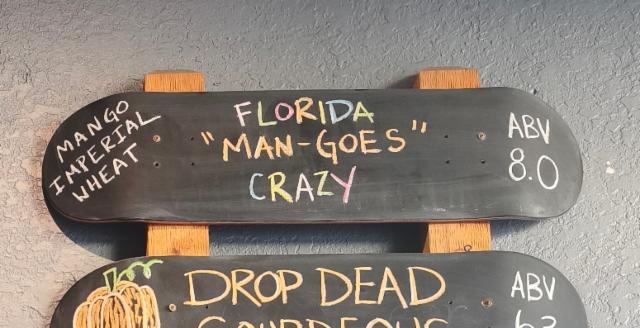 MANGO
IMPERIAL
WHEAT
FLORIDA
"MAN-GOES"
CRAZY
ABV
8.0
DROP DEAD
GOURDEOUS
ABV